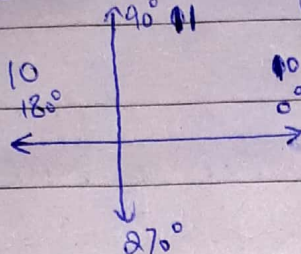 90° 11
10
180°
10
0°
270°